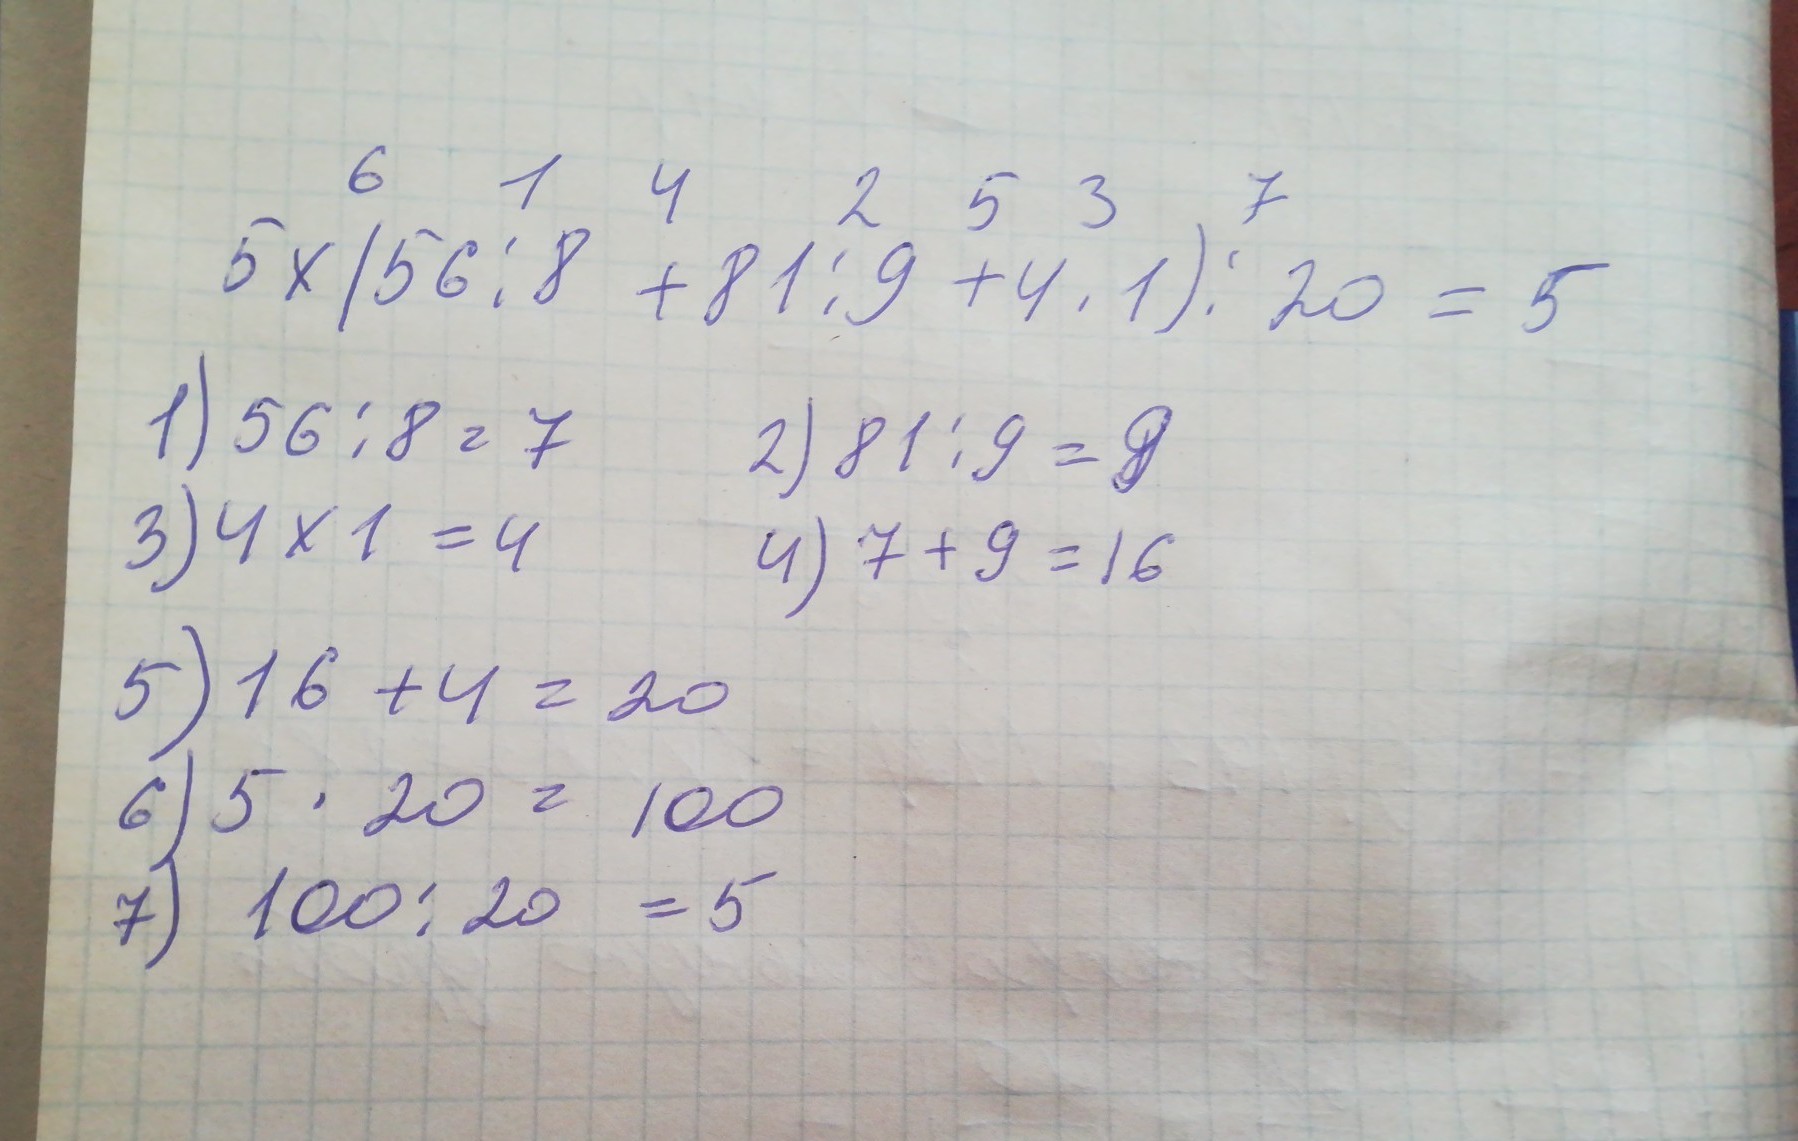 6 1 4 2 5 3 7
5x(56:8 +81:9 +4·1):20 = 5
1) 56:8=7 2) 81:9=9
3) 4x1=4 4) 7+9=16
5) 16+4=20
6) 5·20=100
7) 100:20=5